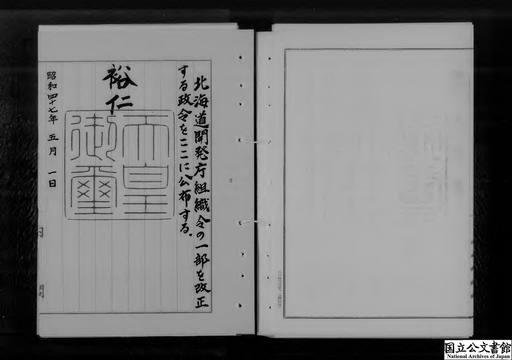 北海道開発庁組織令の一部を改正
する政令をここに公布する。
裕仁
天皇
御璽
昭和四十七年 五月 一日
国立公文書館
National Archives of Japan